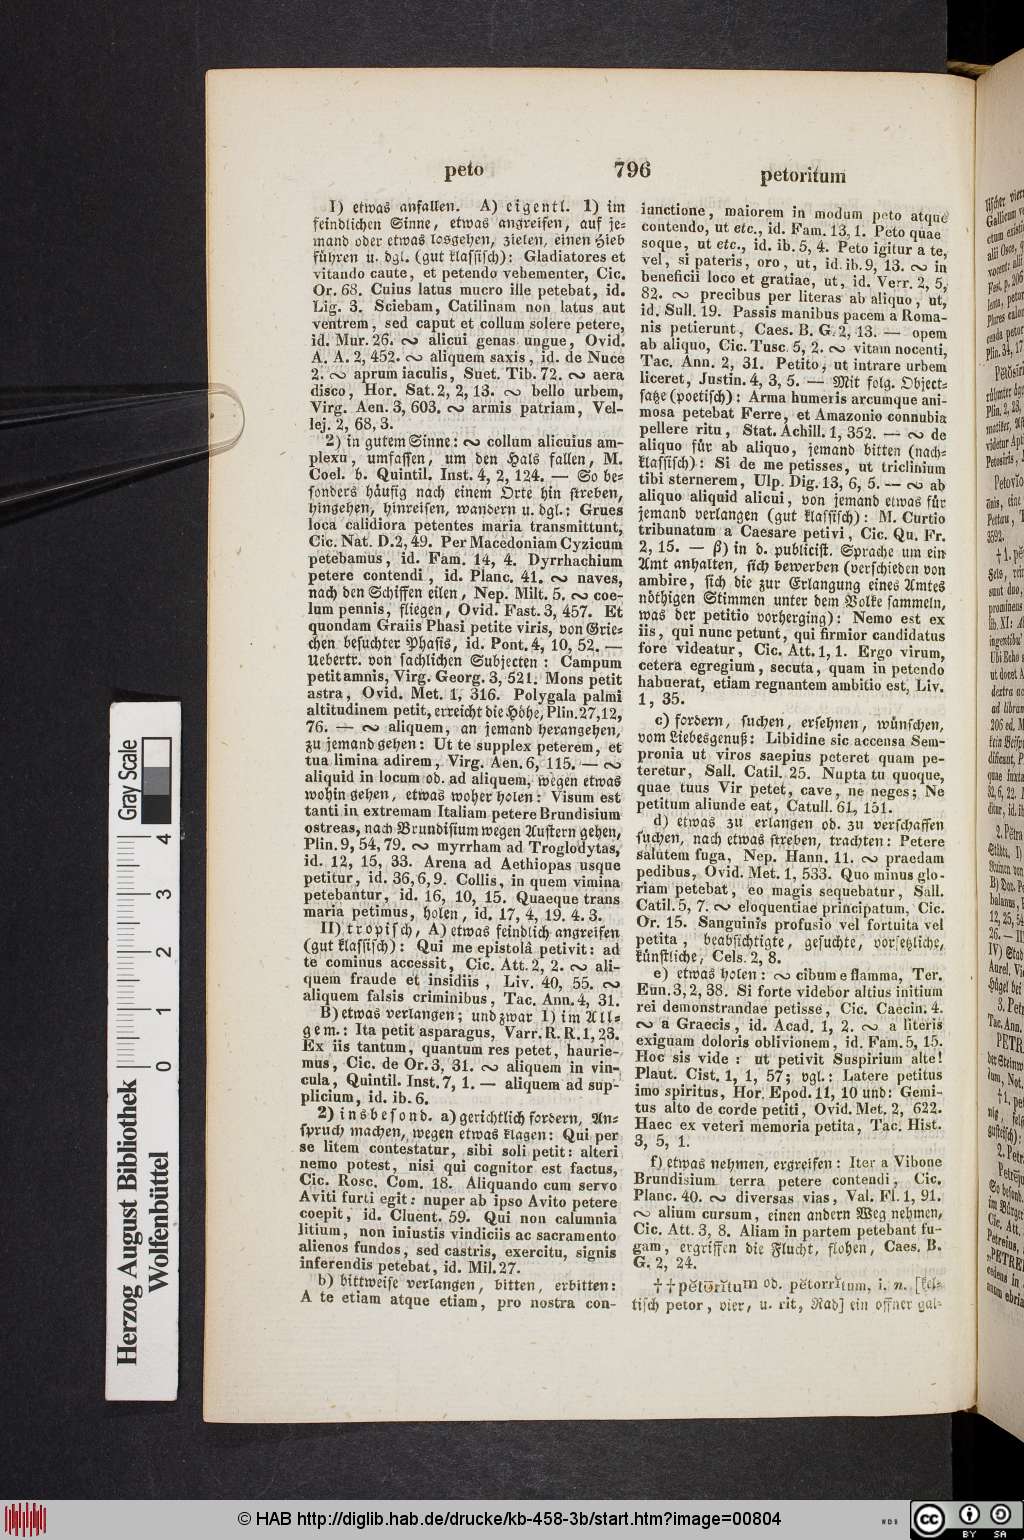 peto 796 petoritum
I) etwas anfallen. A) eigentl. 1) im
feindlichen Sinne, etwas angreifen, auf je-
mand oder etwas losgehen, zielen, einen Hieb
führen u. dgl. (gut klassisch): Gladiatores et
vitando caute, et petendo vehementer, Cic.
Or. 68. Cuius latus mucro ille petebat, id.
Lig. 3. Sciebam, Catilinam non latus aut
ventrem, sed caput et collum solere petere,
id. Mur. 26. ∾ alicui genas ungue, Ovid.
A. A. 2, 452. ∾ aliquem saxis, id. de Nuce
2. ∾ aprum iaculis, Suet. Tib. 72. ∾ aera
disco, Hor. Sat. 2, 2, 13. ∾ bello urbem,
Virg. Aen. 3, 603. ∾ armis patriam, Vel-
lej. 2, 68, 3.
2) in gutem Sinne: ∾ collum alicuius am-
plexu, umfassen, um den Hals fallen, M.
Coel. b. Quintil. Inst. 4, 2, 124. — So be-
sonders häufig nach einem Orte hin streben,
hingehen, hinreisen, wandern u. dgl.: Grues
loca calidiora petentes maria transmittunt,
Cic. Nat. D. 2, 49. Per Macedoniam Cyzicum
petebamus, id. Fam. 14, 4. Dyrrhachium
petere contendi, id. Planc. 41. ∾ naves,
nach den Schiffen eilen, Nep. Milt. 5. ∾ coe-
lum pennis, fliegen, Ovid. Fast. 3, 457. Et
quondam Graiis Phasi petite viris, von Grie-
chen besuchter Phasis, id. Pont. 4, 10, 52. —
Uebertr. von sachlichen Subjecten: Campum
petit amnis, Virg. Georg. 3, 521. Mons petit
astra, Ovid. Met. 1, 316. Polygala palmi
altitudinem petit, erreicht die Höhe, Plin. 27, 12,
76. — ∾ aliquem, an jemand herangehen,
zu jemand gehen: Ut te supplex peterem, et
tua limina adirem, Virg. Aen. 6, 115. — ∾
aliquid in locum od. ad aliquem, wegen etwas
wohin gehen, etwas woher holen: Visum est
tanti in extremam Italiam petere Brundisium
ostreas, nach Brundisium wegen Austern gehen,
Plin. 9, 54, 79. ∾ myrrham ad Troglodytas,
id. 12, 15, 33. Arena ad Aethiopas usque
petitur, id. 36, 6, 9. Collis, in quem vimina
petebantur, id. 16, 10, 15. Quaeque trans
maria petimus, holen, id. 17, 4, 19. 4. 3.
II) tropisch, A) etwas feindlich angreifen
(gut klassisch): Qui me epistolâ petivit: ad
te cominus accessit, Cic. Att. 2, 2. ∾ ali-
quem fraude et insidiis, Liv. 40, 55. ∾
aliquem falsis criminibus, Tac. Ann. 4, 31.
B) etwas verlangen; und zwar 1) im All-
gem.: Ita petit asparagus, Varr. R. R. 1, 23.
Ex iis tantum, quantum res petet, haurie-
mus, Cic. de Or. 3, 31. ∾ aliquem in vin-
cula, Quintil. Inst. 7, 1. — aliquem ad sup-
plicium, id. ib. 6.
2) insbesond. a) gerichtlich fordern, An-
spruch machen, wegen etwas klagen: Qui per
se litem contestatur, sibi soli petit: alteri
nemo potest, nisi qui cognitor est factus,
Cic. Rosc. Com. 18. Aliquando cum servo
Aviti furti egit: nuper ab ipso Avito petere
coepit, id. Cluent. 59. Qui non calumnia
litium, non iniustis vindiciis ac sacramento
alienos fundos, sed castris, exercitu, signis
inferendis petebat, id. Mil. 27.
b) bittweise verlangen, bitten, erbitten:
A te etiam atque etiam, pro nostra con-
iunctione, maiorem in modum peto atque
contendo, ut etc., id. Fam. 13, 1. Peto quae
soque, ut etc., id. ib. 5, 4. Peto igitur a te,
vel, si pateris, oro, ut, id. ib. 9, 13. ∾ in
beneficii loco et gratiae, ut, id. Verr. 2, 5,
82. ∾ precibus per literas ab aliquo, ut,
id. Sull. 19. Passis manibus pacem a Roma-
nis petierunt, Caes. B. G. 2, 13. — opem
ab aliquo, Cic. Tusc. 5, 2. ∾ vitam nocenti,
Tac. Ann. 2, 31. Petito, ut intrare urbem
liceret, Justin. 4, 3, 5. — Mit folg. Object-
satze (poetisch): Arma humeris arcumque ani-
mosa petebat Ferre, et Amazonio connubia
pellere ritu, Stat. Achill. 1, 352. — ∾ de
aliquo für ab aliquo, jemand bitten (nach-
klassisch): Si de me petisses, ut triclinium
tibi sternerem, Ulp. Dig. 13, 6, 5. — ∾ ab
aliquo aliquid alicui, von jemand etwas für
jemand verlangen (gut klassisch): M. Curtio
tribunatum a Caesare petivi, Cic. Qu. Fr.
2, 15. — β) in d. publicist. Sprache um ein
Amt anhalten, sich bewerben (verschieden von
ambire, sich die zur Erlangung eines Amtes
nöthigen Stimmen unter dem Volke sammeln,
was der petitio vorherging): Nemo est ex
iis, qui nunc petunt, qui firmior candidatus
fore videatur, Cic. Att. 1, 1. Ergo virum,
cetera egregium, secuta, quam in petendo
habuerat, etiam regnantem ambitio est, Liv.
1, 35.
c) fordern, suchen, ersehnen, wünschen,
vom Liebesgenuß: Libidine sic accensa Sem-
pronia ut viros saepius peteret quam pe-
teretur, Sall. Catil. 25. Nupta tu quoque,
quae tuus Vir petet, cave, ne neges; Ne
petitum aliunde eat, Catull. 61, 151.
d) etwas zu erlangen od. zu verschaffen
suchen, nach etwas streben, trachten: Petere
salutem fuga, Nep. Hann. 11. ∾ praedam
pedibus, Ovid. Met. 1, 533. Quo minus glo-
riam petebat, eo magis sequebatur, Sall.
Catil. 5, 7. ∾ eloquentiae principatum, Cic.
Or. 15. Sanguinis profusio vel fortuita vel
petita, beabsichtigte, gesuchte, vorsetzliche,
künstliche, Cels. 2, 8.
e) etwas holen: ∾ cibum e flamma, Ter.
Eun. 3, 2, 38. Si forte videbor altius initium
rei demonstrandae petisse, Cic. Caecin. 4.
∾ a Graecis, id. Acad. 1, 2. ∾ a literis
exiguam doloris oblivionem, id. Fam. 5, 15.
Hoc sis vide: ut petivit Suspirium alte!
Plaut. Cist. 1, 1, 57; vgl.: Latere petitus
imo spiritus, Hor. Epod. 11, 10 und: Gemi-
tus alto de corde petiti, Ovid. Met. 2, 622.
Haec ex veteri memoria petita, Tac. Hist.
3, 5, 1.
f) etwas nehmen, ergreifen: Iter a Vibone
Brundisium terra petere contendi, Cic.
Planc. 40. ∾ diversas vias, Val. Fl. 1, 91.
∾ alium cursum, einen andern Weg nehmen,
Cic. Att. 3, 8. Aliam in partem petebant fu-
gam, ergriffen die Flucht, flohen, Caes. B.
G. 2, 24.
††pĕtōrĭtum od. pĕtorrĭtum, i. n. [kel-
tisch petor, vier, u. rit, Rad] ein offner gal-
Herzog August Bibliothek
Wolfenbüttel
Gray Scale
0 1 2 3 4
© HAB http://diglib.hab.de/drucke/kb-458-3b/start.htm?image=00804
WDB
cc BY SA